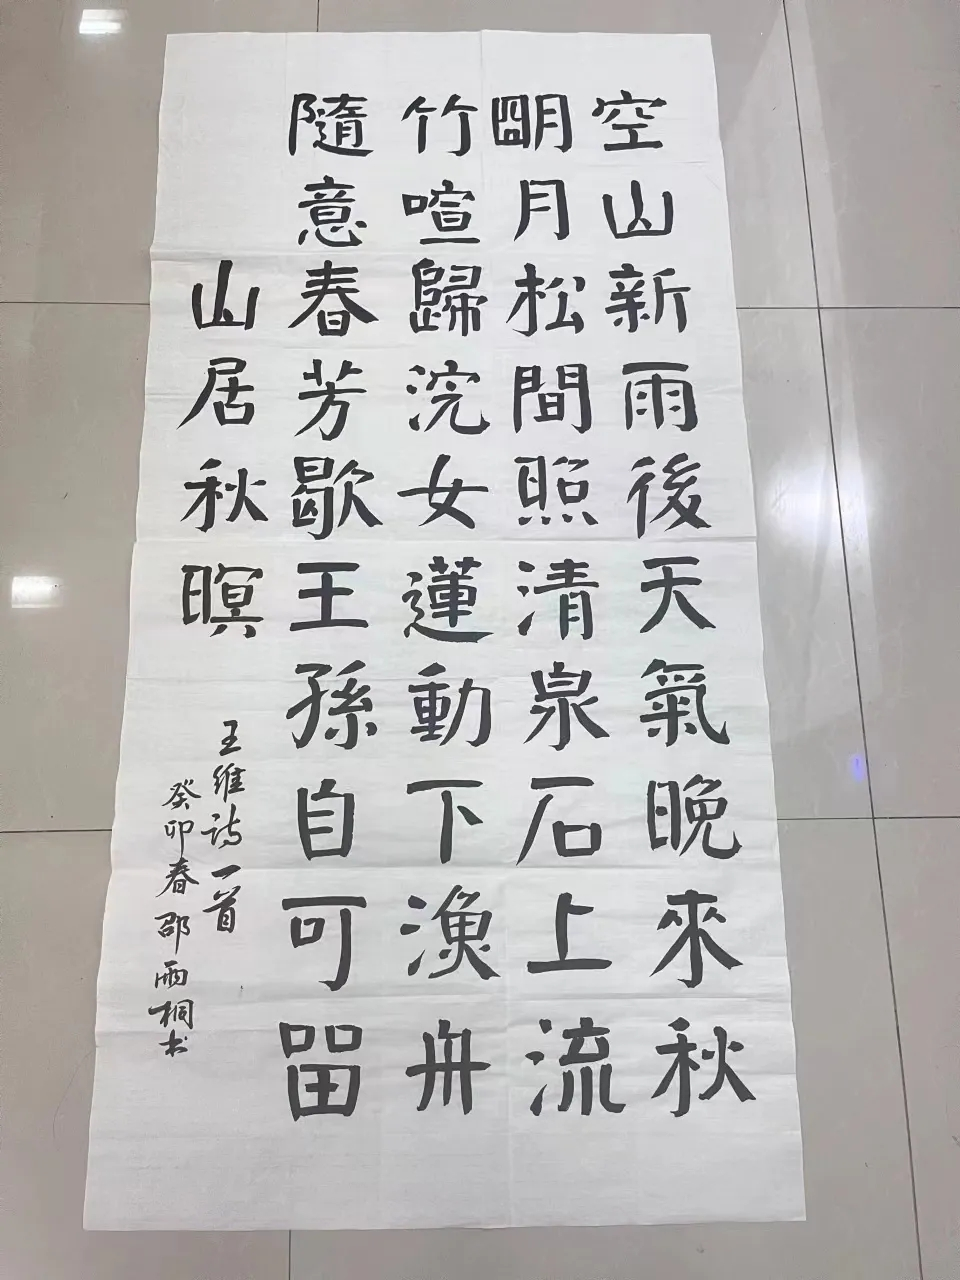 空山新雨後天氣晚來秋
明月松間照清泉石上流
竹喧歸浣女蓮動下漁舟
隨意春芳歇王孫自可留
山居秋暝
王維诗一首
癸卯春邵雨桐书